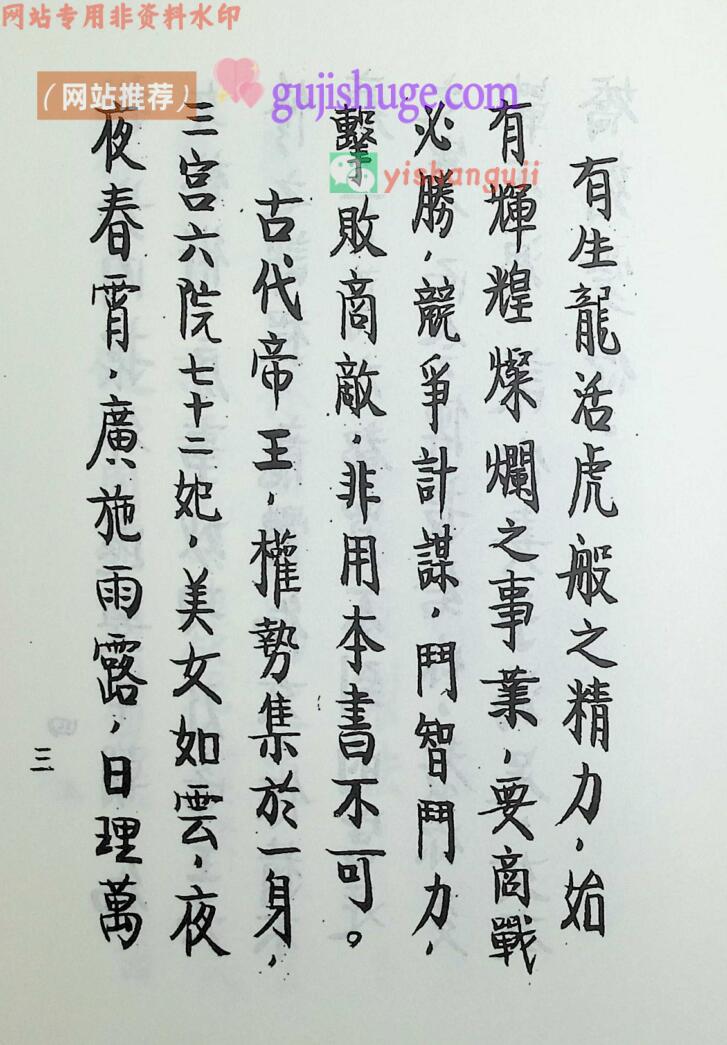 网站专用非资料水印
（网站推荐）
gujishuge.com
yishanguji
有生龍活虎般之精力，始
有輝煌燦爛之事業，要商戰
必勝，競爭計謀，鬥智鬥力，
擊敗商敵，非用本書不可。
古代帝王，權勢集於一身，
三宮六院七十二妃，美女如雲，夜
夜春宵，廣施雨露，日理萬
三